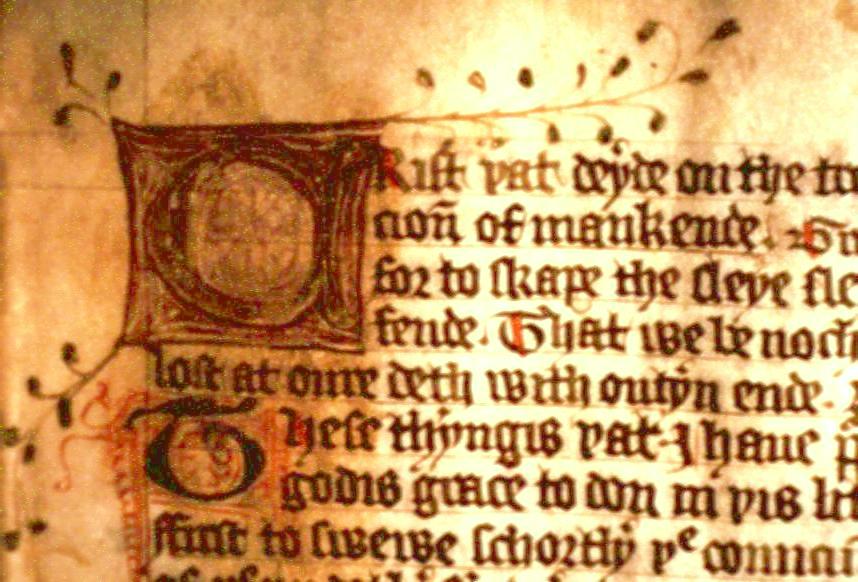 CRist þat deyde on the
cion of mankende.
for to skape the sleye
fende. That we be noch
lost at oure deth with outyn ende.
These thyngis þat I haue
godis grace to don in þis
ffirst to swewe schortly þe